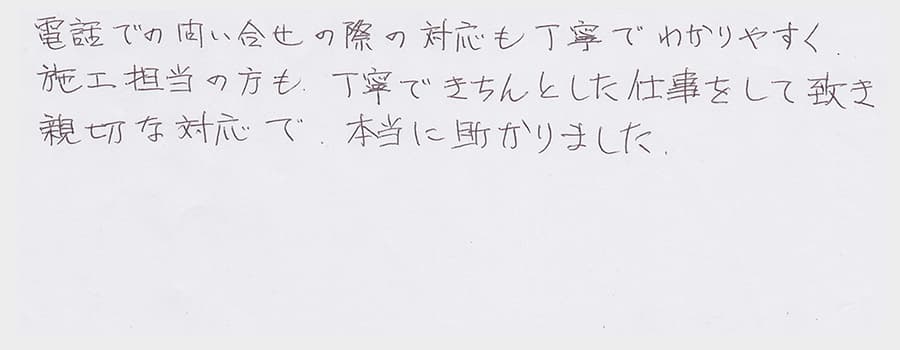 電話での問い合せの際の対応も丁寧でわかりやすく、
施工担当の方も、丁寧できちんとした仕事をして致き
親切な対応で、本当に助かりました。